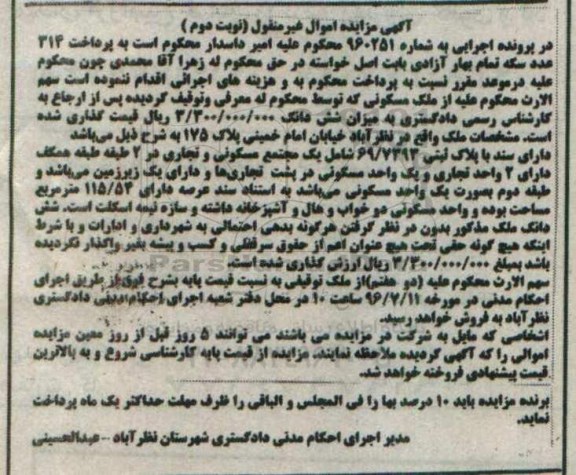 آگهی مزایده اموال غیرمنقول (نوبت دوم)
در پرونده اجرایی به شماره ۹۶۰۲۵۱ محکوم علیه امیر داسدار محکوم است به پرداخت ۳۱۴
عدد سکه تمام بهار آزادی بابت اصل خواسته در حق محکوم له زهرا آقا محمدی چون محکوم
علیه درموعد مقرر نسبت به پرداخت محکوم به و هزینه های اجرائی اقدام ننموده است سهم
الارث محکوم علیه از ملک مسکونی که توسط محکوم له معرفی وتوقیف گردیده پس از ارجاع به
کارشناس رسمی دادگستری به میزان شش دانگ ۳/۳۰۰/۰۰۰/۰۰۰ ریال قیمت گذاری شده
است. مشخصات ملک واقع در نظرآباد خیابان امام خمینی پلاک ۱۷۵ به شرح ذیل می‌باشد
دارای سند با پلاک ثبتی ۶۹/۷۳۹۳ شامل یک مجتمع مسکونی و تجاری در ۲ طبقه طبقه همکف
دارای ۲ واحد تجاری و یک واحد مسکونی در پشت تجاری‌ها و دارای یک زیرزمین می‌باشد و
طبقه دوم بصورت یک واحد مسکونی می‌باشد به استناد سند عرصه دارای ۱۱۵/۵۳ مترمربع
مساحت بوده و واحد مسکونی دو خواب و هال و آشپزخانه داشته و سازه نیمه اسکلت است. شش
دانگ ملک مذکور بدون در نظر گرفتن هرگونه بدهی احتمالی به شهرداری و ادارات و با شرط
اینکه هیچ گونه حقی تحت هیچ عنوان اعم از حقوق سرقفلی و کسب و پیشه بغیر واگذار نگردیده
باشد بمبلغ ۳/۳۰۰/۰۰۰/۰۰۰ ریال ارزش گذاری شده است.
سهم الارث محکوم علیه (دو هفتم)از ملک توقیفی به نسبت قیمت پایه بشرح فوق از طریق اجرای
احکام مدنی در مورخه ۹۶/۷/۱۱ ساعت ۱۰ در محل دفتر شعبه اجرای احکام مدنی دادگستری
نظرآباد به فروش خواهد رسید.
اشخاصی که مایل به شرکت در مزایده می باشند می توانند ۵ روز قبل از روز معین مزایده
اموالی را که آگهی گردیده ملاحظه نمایند. مزایده از قیمت پایه کارشناسی شروع و به بالاترین
قیمت پیشنهادی فروخته خواهد شد.
برنده مزایده باید ۱۰ درصد بها را فی المجلس و الباقی را ظرف مهلت حداکثر یک ماه پرداخت
نماید.
مدیر اجرای احکام مدنی دادگستری شهرستان نظرآباد -عبدالحسینی